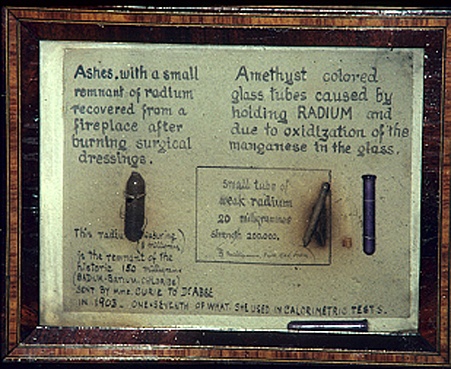 Ashes, with a small
remnant of radium
recovered from a
fireplace after
burning surgical
dressings.
Amethyst colored
glass tubes caused by
holding RADIUM and
due to oxidization of the
manganese in the glass.
Small tube of
weak radium
20 milligrammes
Strength 200,000.
This radium
is the remnant of the
historic 150 milligrams
(RADIUM-BARIUM CHLORIDE)
SENT BY MME. CURIE TO DR ABBE
IN 1903. ONE-SEVENTH OF WHAT SHE USED IN CALORIMETRIC TESTS.